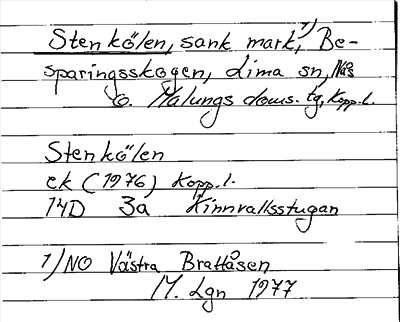 Stenkölen, sank mark,¹) Be-
sparingsskogen, Lima sn, Nås
o. Malungs doms. tg, Kopp. l.
Stenkölen
ek (1976) Kopp. l.
14D 3a Kinnvallsstugan
1) NO Västra Brattåsen
M. Lgn 1977